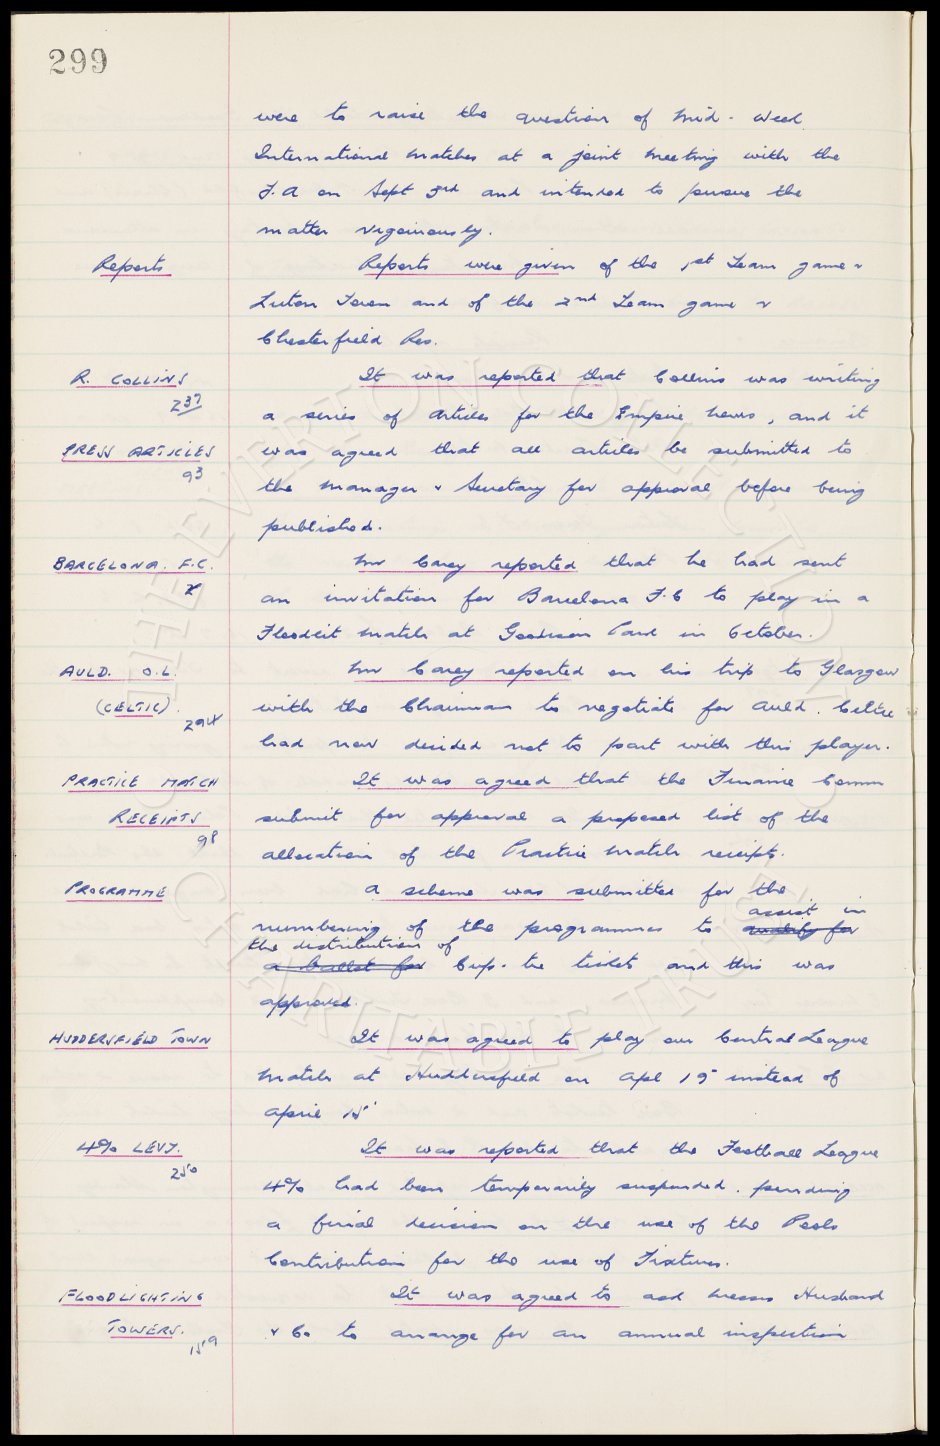 299
were to raise the question of Mid-Week
International Matches at a joint Meeting with the
F.A on Sept 3rd and intended to pursue the
matter vigourously.
Reports
Reports were given of the 1st Team game v
Luton Town and of the 2nd Team game v
Chesterfield Res.
R. COLLINS
237
It was reported that Collins was writing
a series of articles for the Empire News, and it
PRESS ARTICLES
93
was agreed that all articles be submitted to
the Manager & Secretary for approval before being
published.
BARCELONA. F.C.
x
Mr Carey reported that he had sent
an invitation for Barcelona F.C to play in a
Floodlit Match at Goodison Park in October.
AULD. O.L.
(CELTIC)
294
Mr Carey reported on his trip to Glasgow
with the Chairman to negotiate for Auld. Celtic
had now decided not to part with this player.
PRACTICE MATCH
RECEIPTS
98
It was agreed that the Finance Comm
submit for approval a proposed list of the
allocation of the Practice Match receipts.
PROGRAMME
A scheme was submitted for the
numbering of the programmes to qualify for assist in
a ballot for the distribution of Cup-tie tickets and this was
approved.
HUDDERSFIELD TOWN
It was agreed to play our Central League
Match at Huddersfield on Apl 19 instead of
April 15
4% LEVY.
250
It was reported that the Football League
4% had been temporarily suspended. pending
a final decision on the use of the Pools
Contribution for the use of Fixtures.
FLOODLIGHTING
TOWERS.
159
It was agreed to ask Messrs Husband
& Co to arrange for an annual inspection
THE EVERTON COLLECTION
CHARITABLE TRUST